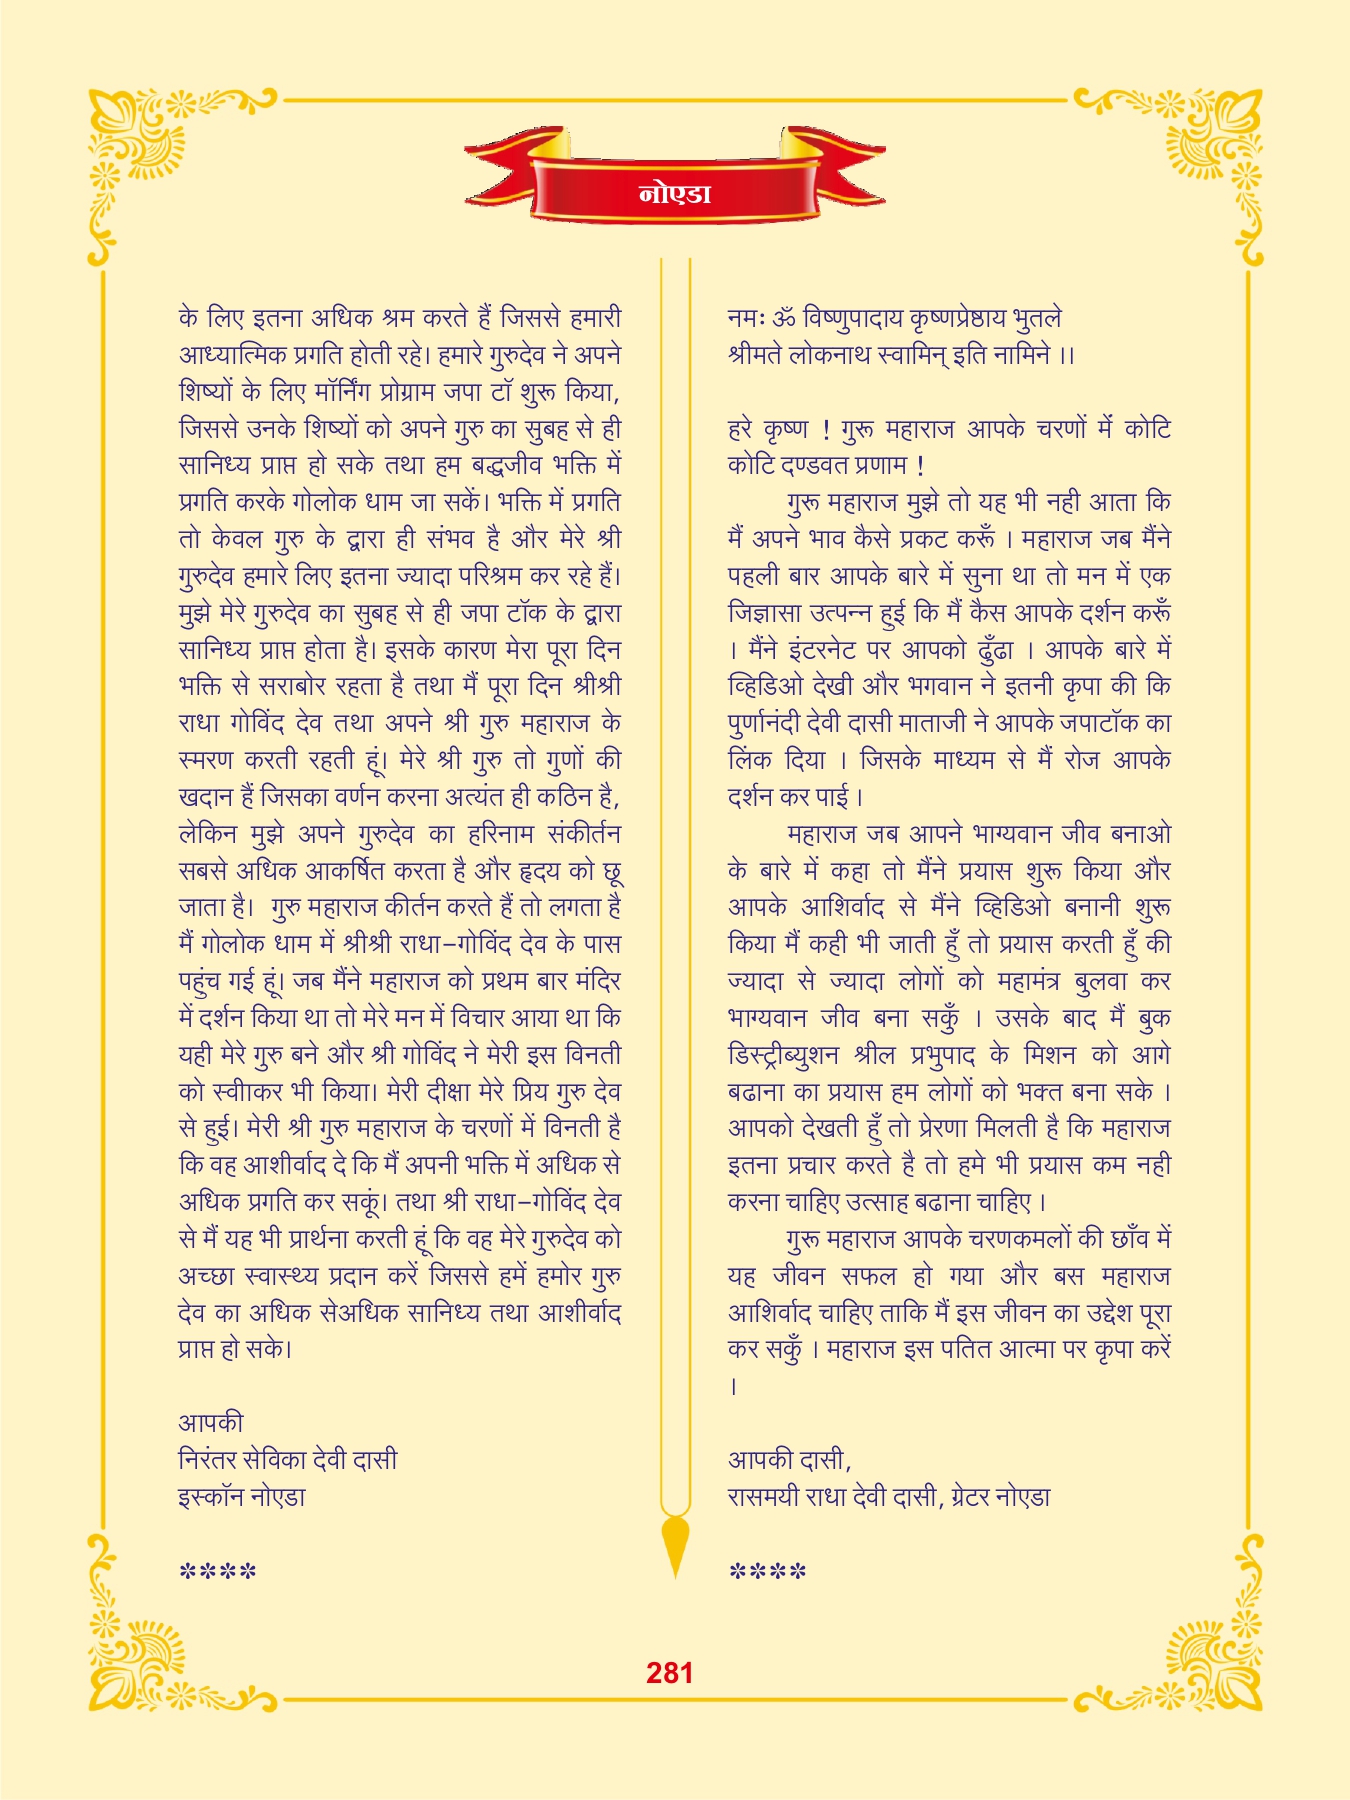 नोएडा
के लिए इतना अधिक श्रम करते हैं जिससे हमारी
आध्यात्मिक प्रगति होती रहे। हमारे गुरुदेव ने अपने
शिष्यों के लिए मॉर्निंग प्रोग्राम जपा टॉ शुरू किया,
जिससे उनके शिष्यों को अपने गुरु का सुबह से ही
सानिध्य प्राप्त हो सके तथा हम बद्धजीव भक्ति में
प्रगति करके गोलोक धाम जा सकें। भक्ति में प्रगति
तो केवल गुरु के द्वारा ही संभव है और मेरे श्री
गुरुदेव हमारे लिए इतना ज्यादा परिश्रम कर रहे हैं।
मुझे मेरे गुरुदेव का सुबह से ही जपा टॉक के द्वारा
सानिध्य प्राप्त होता है। इसके कारण मेरा पूरा दिन
भक्ति से सराबोर रहता है तथा मैं पूरा दिन श्रीश्री
राधा गोविंद देव तथा अपने श्री गुरु महाराज के
स्मरण करती रहती हूं। मेरे श्री गुरु तो गुणों की
खदान हैं जिसका वर्णन करना अत्यंत ही कठिन है,
लेकिन मुझे अपने गुरुदेव का हरिनाम संकीर्तन
सबसे अधिक आकर्षित करता है और हृदय को छू
जाता है।  गुरु महाराज कीर्तन करते हैं तो लगता है
मैं गोलोक धाम में श्रीश्री राधा-गोविंद देव के पास
पहुंच गई हूं। जब मैंने महाराज को प्रथम बार मंदिर
में दर्शन किया था तो मेरे मन में विचार आया था कि
यही मेरे गुरु बने और श्री गोविंद ने मेरी इस विनती
को स्वीाकर भी किया। मेरी दीक्षा मेरे प्रिय गुरु देव
से हुई। मेरी श्री गुरु महाराज के चरणों में विनती है
कि वह आशीर्वाद दे कि मैं अपनी भक्ति में अधिक से
अधिक प्रगति कर सकूं। तथा श्री राधा-गोविंद देव
से मैं यह भी प्रार्थना करती हूं कि वह मेरे गुरुदेव को
अच्छा स्वास्थ्य प्रदान करें जिससे हमें हमोर गुरु
देव का अधिक सेअधिक सानिध्य तथा आशीर्वाद
प्राप्त हो सके।
आपकी
निरंतर सेविका देवी दासी
इस्कॉन नोएडा
****
नमः ॐ विष्णुपादाय कृष्णप्रेष्ठाय भुतले
श्रीमते लोकनाथ स्वामिन् इति नामिने ।।
हरे कृष्ण ! गुरू महाराज आपके चरणों में कोटि
कोटि दण्डवत प्रणाम !
गुरू महाराज मुझे तो यह भी नही आता कि
मैं अपने भाव कैसे प्रकट करूँ । महाराज जब मैंने
पहली बार आपके बारे में सुना था तो मन में एक
जिज्ञासा उत्पन्न हुई कि मैं कैस आपके दर्शन करूँ
। मैंने इंटरनेट पर आपको ढुँढा । आपके बारे में
व्हिडिओ देखी और भगवान ने इतनी कृपा की कि
पुर्णानंदी देवी दासी माताजी ने आपके जपाटॉक का
लिंक दिया । जिसके माध्यम से मैं रोज आपके
दर्शन कर पाई ।
महाराज जब आपने भाग्यवान जीव बनाओ
के बारे में कहा तो मैंने प्रयास शुरू किया और
आपके आशिर्वाद से मैंने व्हिडिओ बनानी शुरू
किया मैं कही भी जाती हुँ तो प्रयास करती हुँ की
ज्यादा से ज्यादा लोगों को महामंत्र बुलवा कर
भाग्यवान जीव बना सकुँ । उसके बाद मैं बुक
डिस्ट्रीब्युशन श्रील प्रभुपाद के मिशन को आगे
बढाना का प्रयास हम लोगों को भक्त बना सके ।
आपको देखती हुँ तो प्रेरणा मिलती है कि महाराज
इतना प्रचार करते है तो हमे भी प्रयास कम नही
करना चाहिए उत्साह बढाना चाहिए ।
गुरू महाराज आपके चरणकमलों की छाँव में
यह जीवन सफल हो गया और बस महाराज
आशिर्वाद चाहिए ताकि मैं इस जीवन का उद्देश पूरा
कर सकुँ । महाराज इस पतित आत्मा पर कृपा करें
।
आपकी दासी,
रासमयी राधा देवी दासी, ग्रेटर नोएडा
****
281